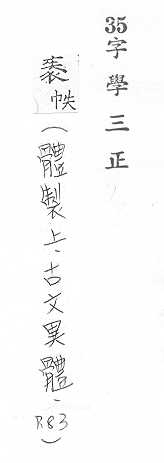 35字學三正
袠帙(體製上、古文異體、P.83)